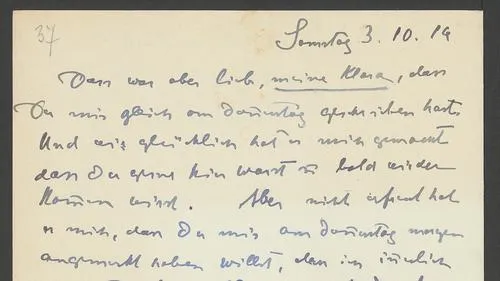 37
Samstag 3. 10. 14
Dass war aber lieb, meine Klara, dass
Du mir gleich am Donnerstag geschrieben hast.
Und wie glücklich hat es mich gemacht
dass Du gerne hier warst u bald wieder
kommen wirst. Aber nicht erfreut hat
es mich, dass Du mir am Donnerstag morgen
angemerkt haben willst, dass ich innerlich